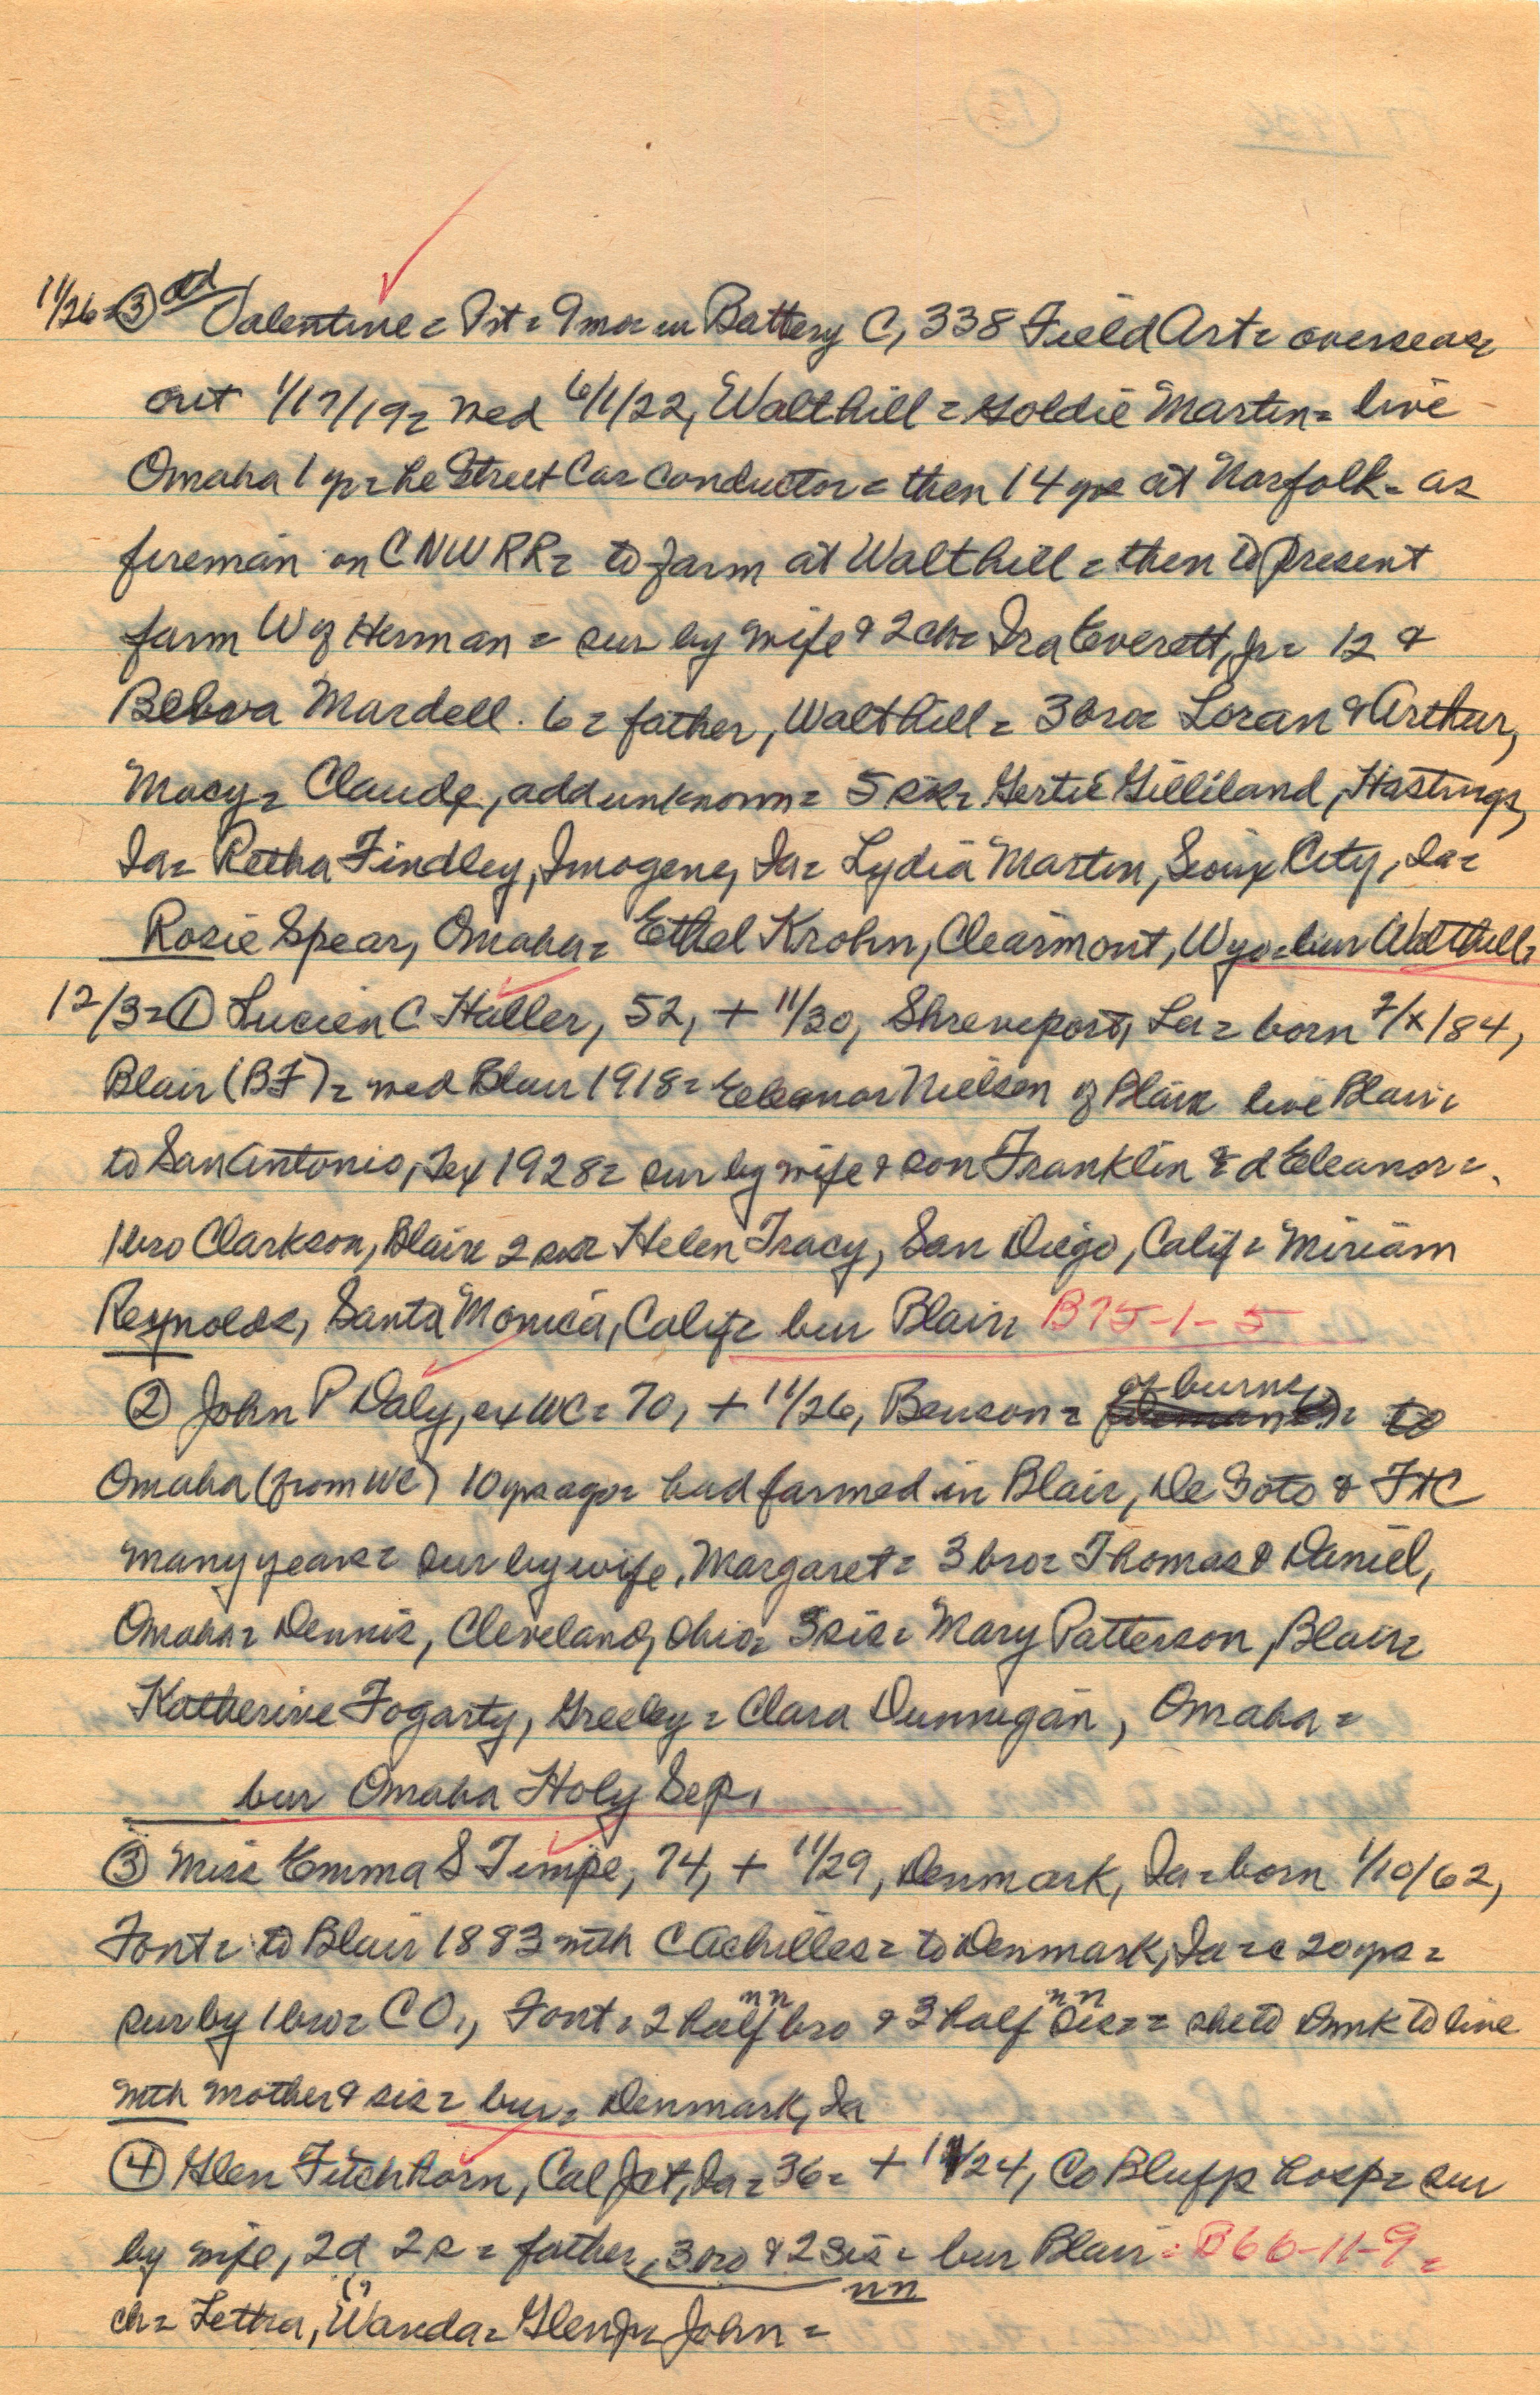 11/26= ③ add Valentine = Pvt = 9 mos in Battery C, 338 Field Art = overseas =
out 1/17/19 = med 6/1/22, Walthill = Goldie Martin = live
Omaha 1 yr = he Street Car conductor = then 14 yrs at Norfolk = as
fireman on CNWRR = to farm at Walthill = then to present
farm W of Herman = sur by wife & 2 ch = Ira Everett, Jr = 12 &
Mardell. 6 = father, Walthill = 3 bros Loran & Arthur,
Macy = Claude, add unknown = 5 sis = Gertie Gilliland, Hastings,
Ia = Retha Findley, Imogene, Ia = Lydia Martin, Sioux City, Ia =
Rosie Spear, Omaha = Ethel Krohn, Clearmont, Wyo = bur Walthill =
12/3 = ① Lucien C Haller, 52, + 11/30, Shreveport, La = born 7/x/84,
Blair (BF) = med Blair 1918 = Eleanor Nielsen of Blair live Blair =
to San Antonio, Tex 1928 = sur by wife & son Franklin & d Eleanor =
1 bro Clarkson, Blair = 2 sis = Helen Tracy, San Diego, Calif = Miriam
Reynolds, Santa Monica, Calif = bur Blair = B75-1-5
② John P Daly, ex WC = 70, + 11/26, Benson = of burns = to
Omaha (from WC) 10 yrs ago = had farmed in Blair, De Soto & FtC
many years = sur by wife, Margaret = 3 bro = Thomas & Daniel,
Omaha = Dennis, Cleveland, Ohio = 3 sis = Mary Patterson, Blair =
Katherine Fogarty, Greeley = Clara Dunnigan, Omaha =
bur Omaha Holy Sep.
③ Miss Emma S Timpe, 74, + 11/29, Denmark, Ia = born 1/10/62,
Font = to Blair 1883 with C Achilles = to Denmark, Ia = c 20 yrs =
sur by 1 bro = CO., Font = 2 half nn bro & 3 half nn sis = = she to Dmk to live
with mother & sis = bur = Denmark, Ia
④ Glen Fitchhorn, Cal Jct, Ia = 36 = + 11/24, Co Bluffs hosp = sur
by wife, 2d 2s = father, 3 bro & 2 sis = bur Blair = B66-11-9 =
nn
ch = Letha, Wanda = Glen Jr = John =